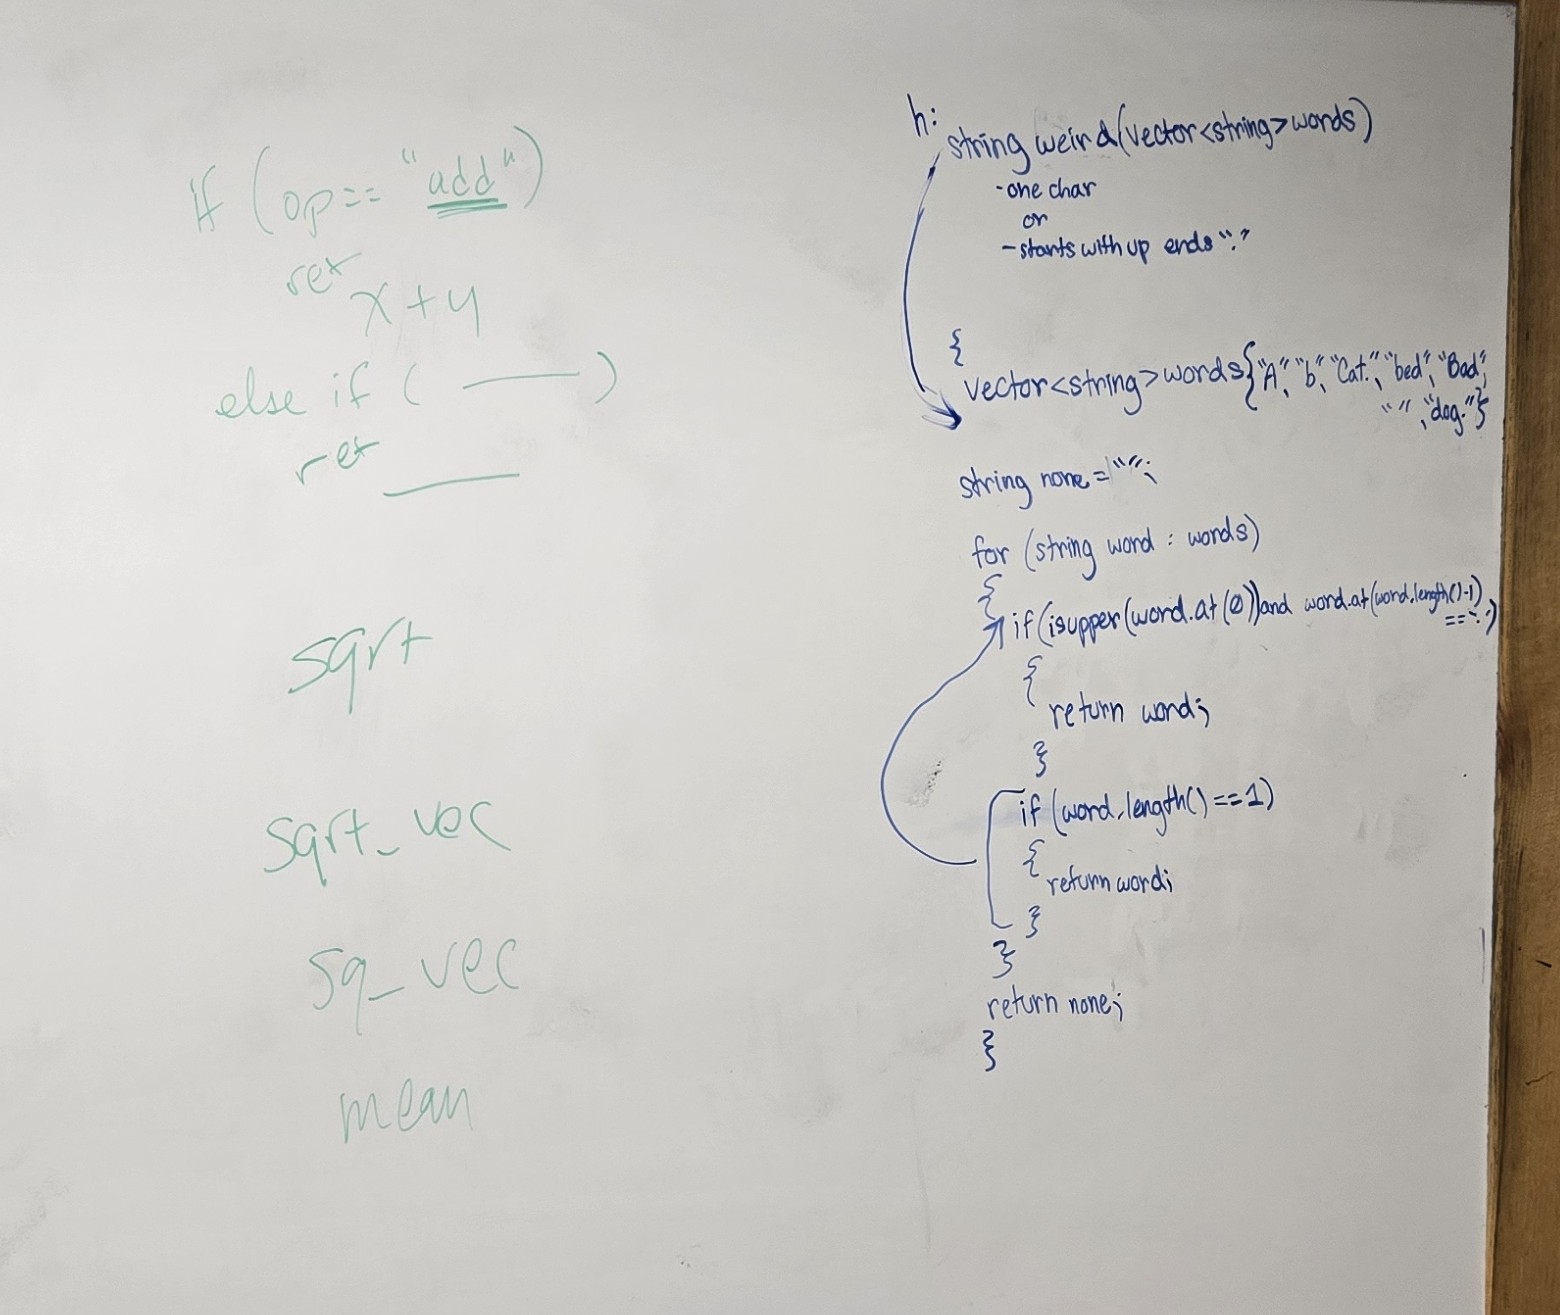 If (op == "add")
ret x + y
else if ( ___ )
ret ___
sqrt
sqrt_vec
sq_vec
mean
h:
string weird(vector<string>words)
- one char
or
- starts with up ends "."
{
vector<string>words{"A", "b", "Cat.", "bed", "Bad",
" ", "dog."}
string none = "";
for (string word : words)
{
if (isupper(word.at(0)) and word.at(word.length()-1)
== '.')
{
return word;
}
if (word.length() == 1)
{
return word;
}
}
return none;
}